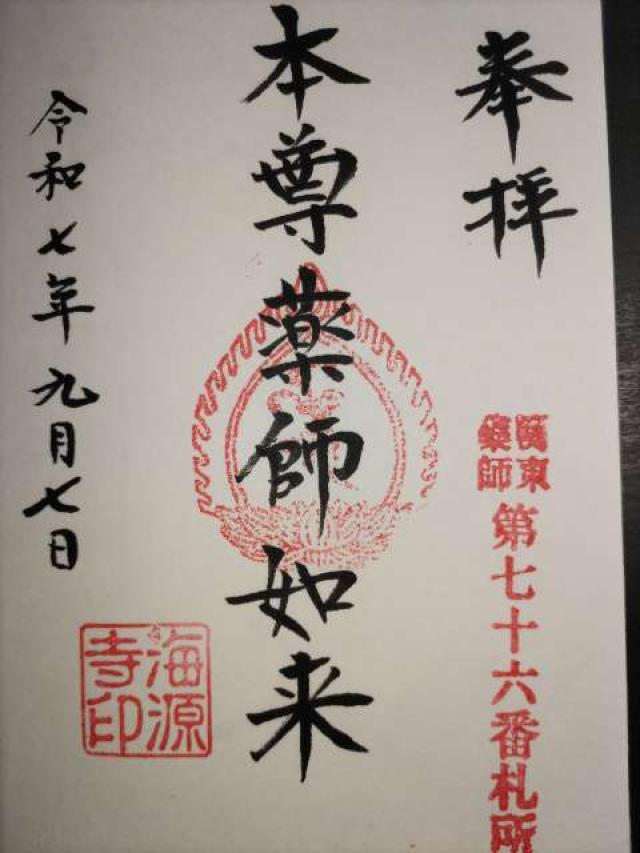 奉拝
關東
藥師
第七十六番札所
本尊薬師如来
令和七年九月七日
海源
寺印